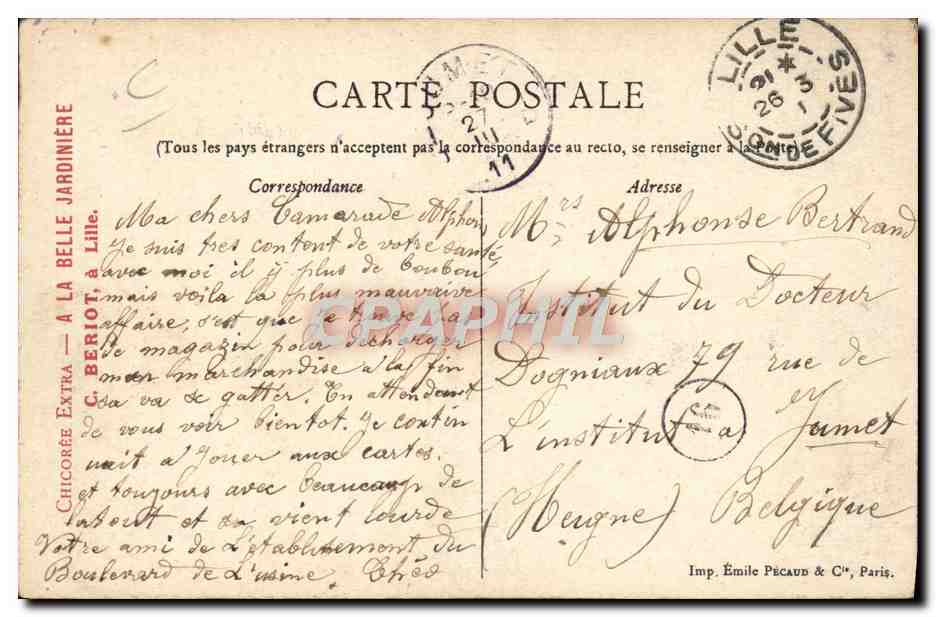 CARTE POSTALE
(Tous les pays étrangers n'acceptent pas la correspondance au recto, se renseigner à la Poste)
CHICORÉE EXTRA — A LA BELLE JARDINIÈRE
C. BERIOT, à Lille.
Correspondance
Ma chers Camarade Alphon
Je suis tres content de votre santé
avec moi il y plus de boubou
mais voila la plus mauvaive
affaire, s'est que je
de magazin pour decharger
mon marchandise a la fin
sa va se gatter. En attendant
de vous voir bientot. Je contin
uait a Jouer aux cartes.
et toujours avec beaucoup de
latout et sa vient lourde
Votre ami de L'établinement du
Boulevard de L'usine. Théo
Adresse
Mrs Alphonse Bertrand
Institut du Docteur
Dogniaux 79 rue de
L'institut a Jumet
(Heigne) Belgique
LILLE
21
26 3
1
SON DE FIVES
JUMET
27
III
11
CPAPHIL
Imp. Émile PÉCAUD & Cie, Paris.